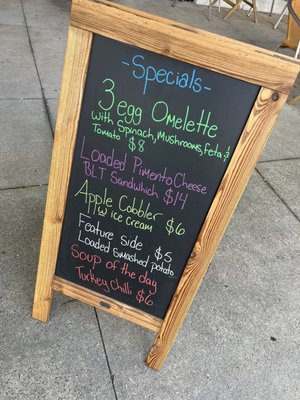 -Specials-
3 egg Omelette
With Spinach, Mushrooms, Feta &
Tomato $8
Loaded Pimento Cheese
BLT Sandwhich $14
Apple Cobbler $6
w ice cream
Feature Side $5
Loaded Smashed potato
Soup of the day
Turkey Chili $6